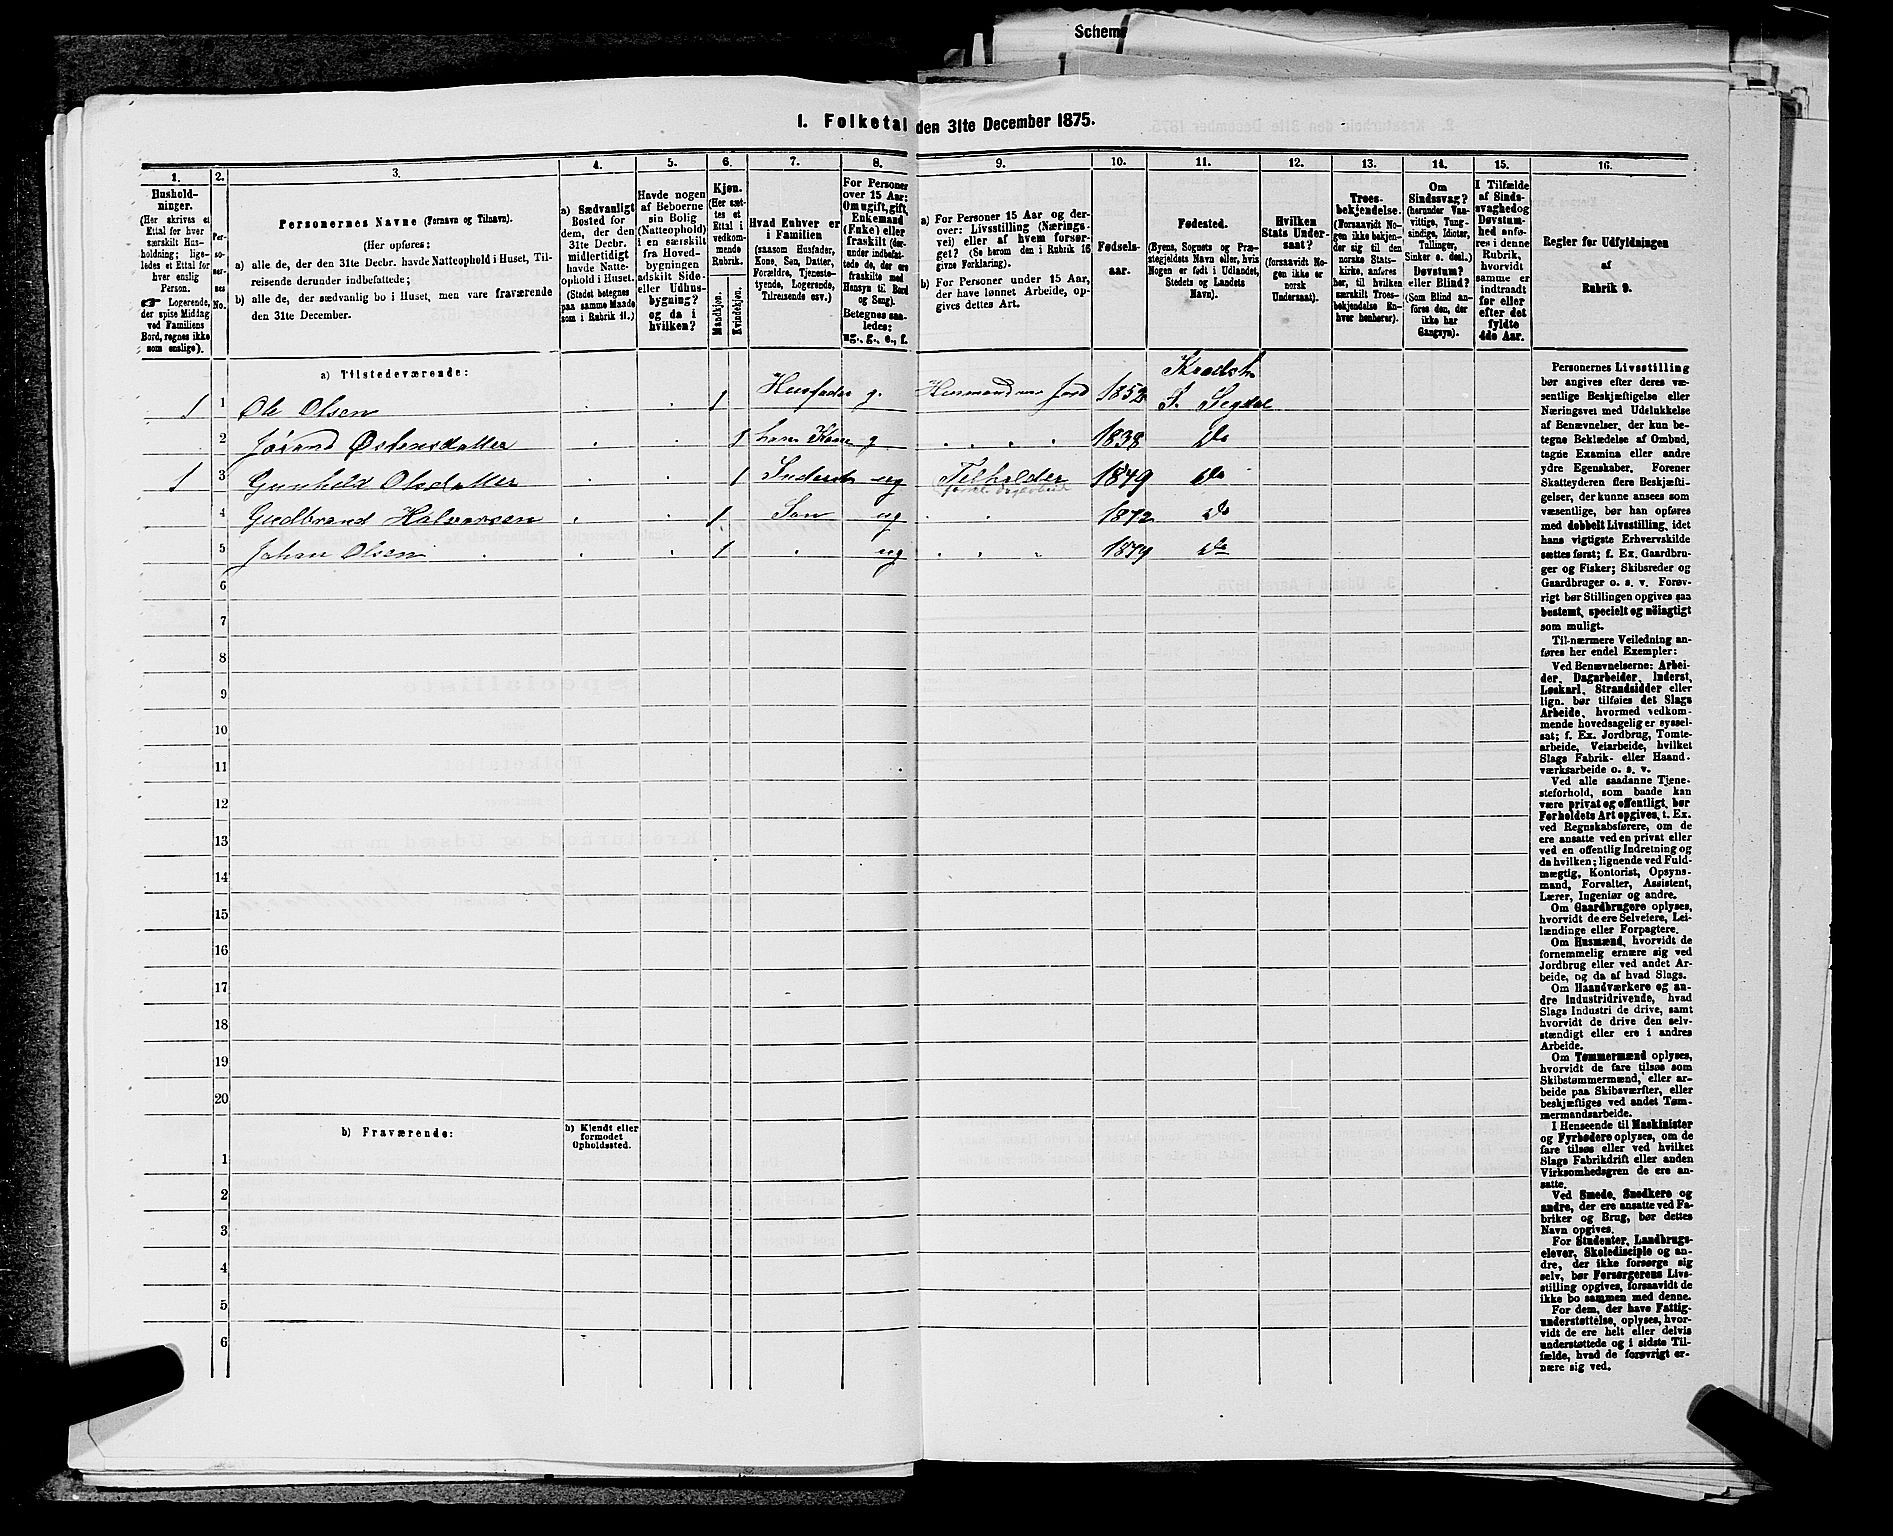 Schem
I. Folketal den 31te December 1875.
1.
Hushold-
ninger.
(Her skrives et
Ettal for hver
særskilt Hus-
holdning; lige-
ledes et Ettal for
hver enslig
Person.
☛ Logerende,
der spise Middag
ved Familiens
Bord, regnes ikke
som enslige).
2.
Per-
so-
ner-
nes
No.
3.
Personernes Navne (Fornavn og Tilnavn).
(Her opføres:
a) alle de, der den 31te Decbr. havde Natteophold i Huset, Til-
reisende derunder indbefattede;
b) alle de, der sædvanlig bo i Huset, men vare fraværende
den 31te December.
4.
a) Sædvanligt
Bosted for
dem, der den
31te Decbr.
midlertidigt
havde Natte-
ophold i Huset.
(Stedet betegnes
paa samme Maade
som i Rubrik 11.)
5.
Havde nogen
af Beboerne
sin Bolig
(Natteophold)
i en særskilt
fra Hoved-
bygningen
adskilt Side-
eller Udhus-
bygning?
og da i
hvilken?
6.
Kjøn.
(Her sæt-
tes et
Ettal i
vedkom-
mende
Rubrik.
Mandkjøn.
Kvindekjøn.
7.
Hvad Enhver er
i Familien
(saasom Husfader,
Kone, Søn, Datter,
Forældre, Tjeneste-
tyende, Logerende,
Tilreisende osv.)
8.
For Personer
over 15 Aar:
Om ugift, gift,
Enkemand
(Enke) eller
fraskilt (der-
under indbefat-
tede de, der ere
fraskilte med
Hensyn til Bord
og Seng).
Betegnes saa-
ledes:
ug., g., e., f.
9.
a) For Personer 15 Aar og der-
over: Livsstilling (Nærings-
vei) eller af hvem forsør-
get? (Se herom den i Rubrik 16
givne Forklaring).
b) For Personer under 15 Aar,
der have lønnet Arbeide, op-
gives dettes Art.
10.
Fødsels-
aar.
11.
Fødested.
(Byens, Sognets og Præ-
stegjeldets Navn eller, hvis
Nogen er født i Udlandet,
Stedets og Landets
Navn).
12.
Hvilken
Stats Under-
saat?
(forsaavidt No-
gen ikke er
norsk
Undersaat).
13.
Troes-
bekjendelse.
(Forsaavidt No-
gen ikke bekjen-
der sig til den
norske Stats-
kirke, anføres
her, til hvilken
særskilt Troes-
bekjendelse En-
hver henhører).
14.
Om
Sindssvag?
(herunder Van-
vittige, Tung-
sindige, Idioter,
Tullinger,
Sinker o. desl.)
Døvstum?
eller Blind?
(Som Blind an-
føres den, der
ikke har
Gangsyn).
15.
I Tilfælde
af Sinds-
svaghed og
Døvstum-
hed anfø-
res i denne
Rubrik,
hvorvidt
samme er
indtraadt
før eller
efter det
fyldte
4de Aar.
16.
Regler for Udfyldningen
af
Rubrik 9.
a) Tilstedeværende:
Kradsh
1 1 Ole Olsen 1 Husfader g. Husmand m Jord 1852 P. Sigdal
2 Jørand Østensdatter 1 hans Kone g. 1838 Do
1 3 Gunhild Olsdatter 1 Inderst ug 1849 Do
4 Gudbrand Halvorsen 1 Søn ug 1872 Do
5 Johan Olsen 1 ug Do
6
7
8
9
10
11
12
13
14
15
16
17
18
19
20
b) Fraværende:
b) Kjendt eller
formodet
Opholdssted.
1
2
3
4
5
6
Personernes Livsstilling
bør angives efter deres væ-
sentlige Beskjæftigelse eller
Næringsvei med Udelukkelse
af Benævnelser, der kun be-
tegne Beklædelse af Ombud,
tagne Examina eller andre
ydre Egenskaber. Forener
Skatteyderen flere Beskjæfti-
gelser, der kunne ansees som
væsentlige, bør han opføres
med dobbelt Livsstilling, idet
hans vigtigste Erhvervskilde
sættes først; f. Ex. Gaardbru-
ger og Fisker; Skibsreder og
Gaardbruger o. s. v. Forøv-
rigt bør Stillingen opgives saa
bestemt, specielt og nøiagtigt
som muligt.
Til nærmere Veiledning an-
føres her endel Exempler:
Ved Benævnelserne: Arbei-
der, Dagarbeider, Inderst,
Løskarl, Strandsidder eller
lign. bør tilføies det Slags
Arbeide, hvormed vedkom-
mende hovedsagelig er syssel-
sat; f. Ex. Jordbrug, Tomte-
arbeide, Veiarbeide, hvilket
Slags Fabrik- eller Haand-
værksarbeide o. s. v.
Ved alle saadanne Tjene-
steforhold, som baade kan
være privat og offentligt, bør
Forholdets Art opgives, t. Ex.
ved Regnskabsførere, om de
ere ansatte ved en privat eller
ved en offentlig Indretning og
da hvilken; lignende ved Fuld-
mægtig, Kontorist, Opsyns-
mand, Forvalter, Assistent,
Lærer, Ingeniør og andre.
Om Gaardbrugere oplyses,
hvorvidt de ere Selveiere, Lei-
lændinge eller Forpagtere.
Om Husmænd, hvorvidt de
fornemmelig ernære sig ved
Jordbrug eller ved andet Ar-
beide, og da af hvad Slags.
Om Haandværkere og an-
dre Industridrivende, hvad
Slags Industri de drive, samt
hvorvidt de drive den selv-
stændigt eller ere i andres
Arbeide.
Om Tømmermænd oplyses,
hvorvidt de fare tilsøs som
Skibstømmermænd, eller ar-
beide paa Skibsværfter, eller
beskjæftiges ved andet Tøm-
mermandsarbeide.
I Henseende til Maskinister
og Fyrbødere oplyses, om de
fare tilsøs eller ved hvilket
Slags Fabrikdrift eller anden
Virksomhedsgren de ere an-
satte.
Ved Smede, Snedkere og
andre, der ere ansatte ved Fa-
briker og Brug, bør dettes
Navn opgives.
For Studenter, Landbrugs-
elever, Skoledisciple og an-
dre, der ikke forsørge sig
selv, bør Forsørgerens Livs-
stilling opgives, forsaavidt de
ikke bo sammen med denne.
For dem, der have Fattig-
understøttelse, oplyses, hvor-
vidt de ere helt eller delvis
understøttede og i sidste Til-
fælde, hvad de forøvrigt er-
nære sig ved.